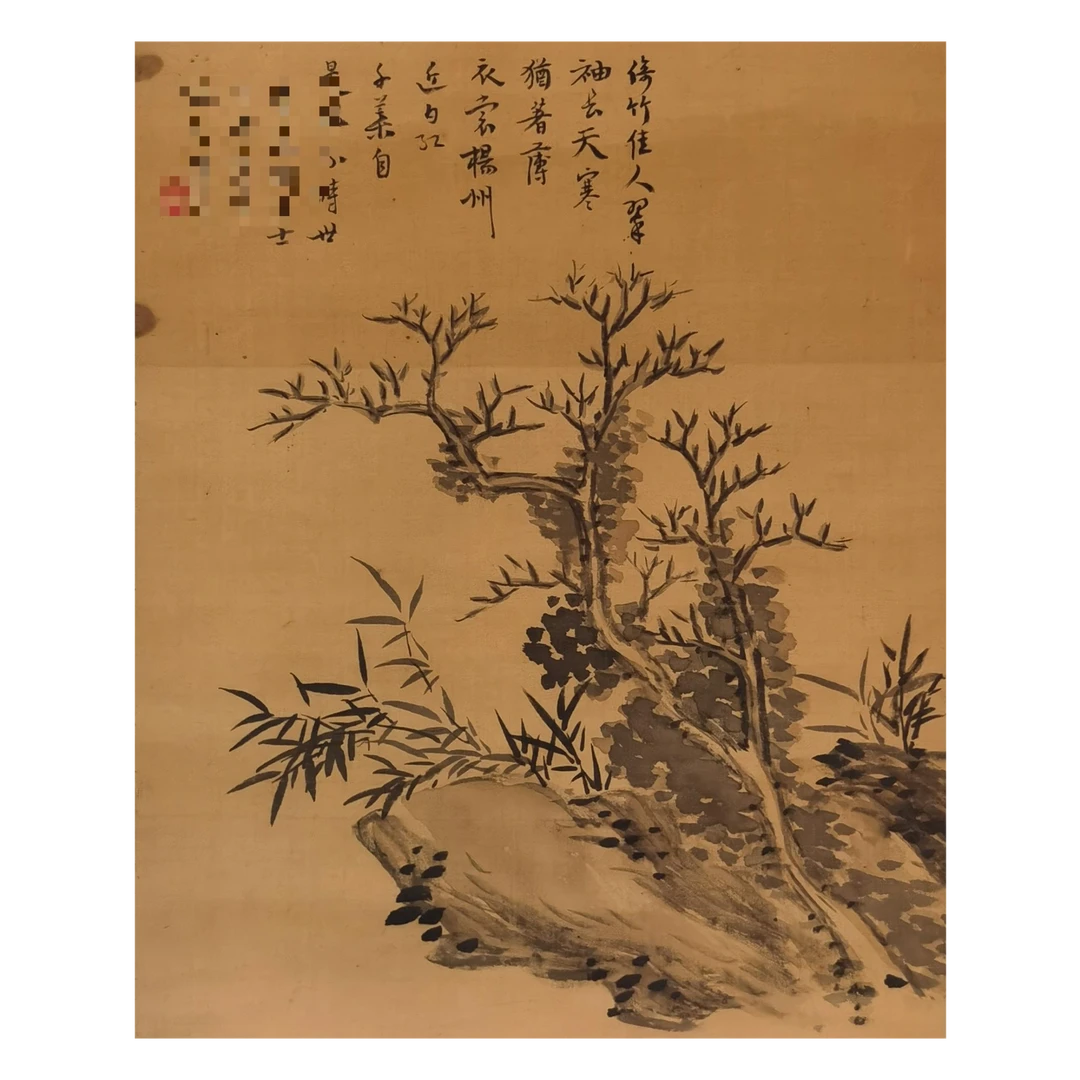 倚竹佳人翠
袖長天寒
猶著薄
衣裳楊州
近日紅
千葉自
是時世
士